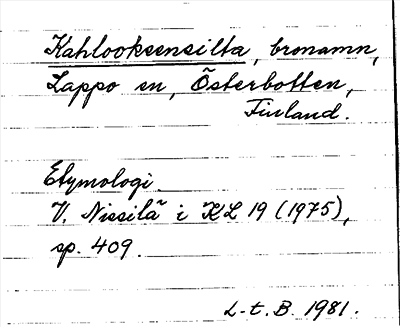 Kahlooksensilta, bronamn,
Lappo sn, Österbotten,
Finland.
Etymologi
V. Nissilä i KL 19 (1975),
sp. 409.
L-t. B. 1981.